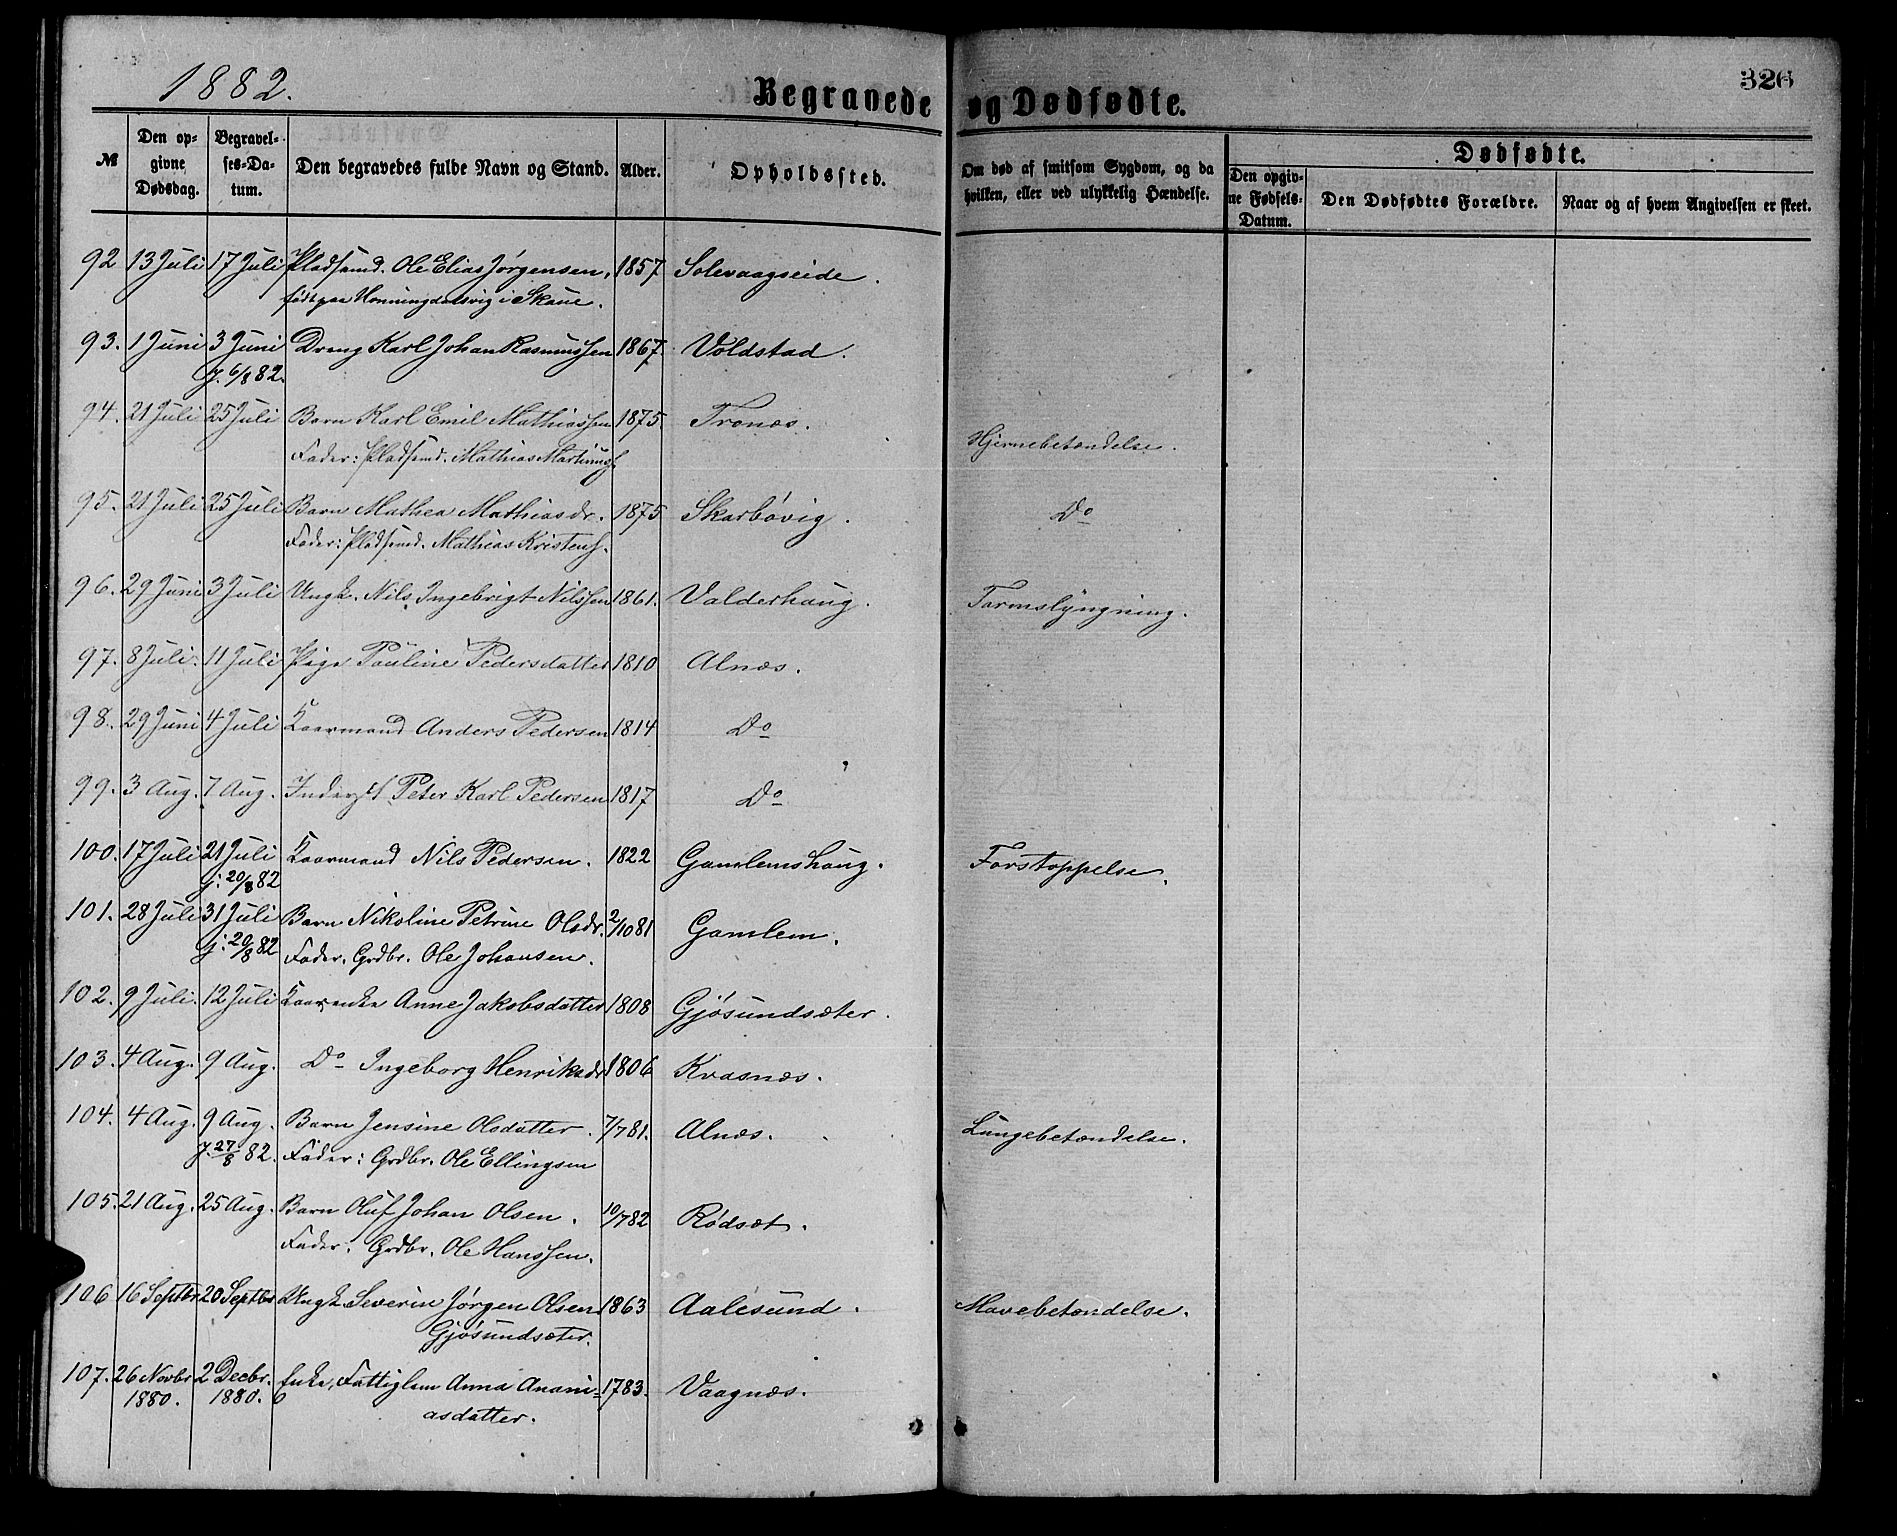 1882.
Begravede og Dødfødte.
326
№
Den opgivne Dødsdag.
Begravelses-Datum.
Den begravedes fulde Navn og Stand.
Alder.
Opholdssted.
Om død af smitsom Sygdom, og da hvilken, eller ved ulykkelig Hændelse.
Dødfødte.
Den opgivne Fødsels-Datum.
Den Dødfødtes Forældre.
Naar og af hvem Angivelsen er skeet.
92 13 Juli 17 Juli Pladsmd. Ole Elias Jørgensen, 1857 Solevaagseide.
født paa Honningdalsvig i Skaue.
93. 1 Juni 3 Juni Dreng Karl Johan Rasmussen 1867. Voldstad.
J. 6/8 82.
94. 21 Juli 25 Juli Barn Karl Emil Mathiassen 1875. Tronæs. Hjernebetændelse.
Fader: Pladsmd. Mathias Martinus
95. 21 Juli 25 Juli Barn Mathea Mathiasdr. 1875 Skarbøvig. Do
Fader: Pladsmd. Mathias Kristens.
96. 29 Juni 3 Juli Ungk. Nils Ingebrigt Nilssen 1861. Valderhaug. Tarmslyngning.
97. 8 Juli. 11 Juli Pige Pauline Pedersdatter 1810 Alnæs.
98. 29 Juni 4 Juli Kaarmand Anders Pedersen 1814 Do
99. 3 Aug. 7 Aug. Inderst Peter Karl Pedersen 1817 Do
100. 17 Juli 21 Juli Kaarmand Nils Pedersen. 1822 Gamlemshaug. Forstoppelse.
j. 20/8 82
101. 28 Juli 31 Juli Barn Nikoline Petrine Olsdr. 2/10 81 Gamlem.
j. 20/8 82 Fader. Grdbr. Ole Johansen.
102. 9 Juli. 12 Juli Kaarenke Anne Jakobsdatter 1808 Gjøsundsæter.
103. 4 Aug. 9 Aug. Do Ingeborg Henriksdr 1806 Kvasnæs.
104. 4 Aug. 9 Aug. Barn Jensine Olsdatter. 7/7 81. Alnæs. Lungebetændelse.
J. 27/8 82. Fader: Grdbr. Ole Ellingsen
105. 21 Aug. 25 Aug. Barn Oluf Johan Olsen. 10/7 82 Rødsæt.
Fader. Grdbr. Ole Hanssen.
106 16 Septbr 20 Septbr Ungk. Severin Jørgen Olsen 1863 Aalesund. Mavebetændelse.
Gjøsundsæter.
107. 26 Novbr 2 Decbr. Enke, Fattiglem Anna Anani- 1783. Vaagnæs.
1880. 1880. asdatter.